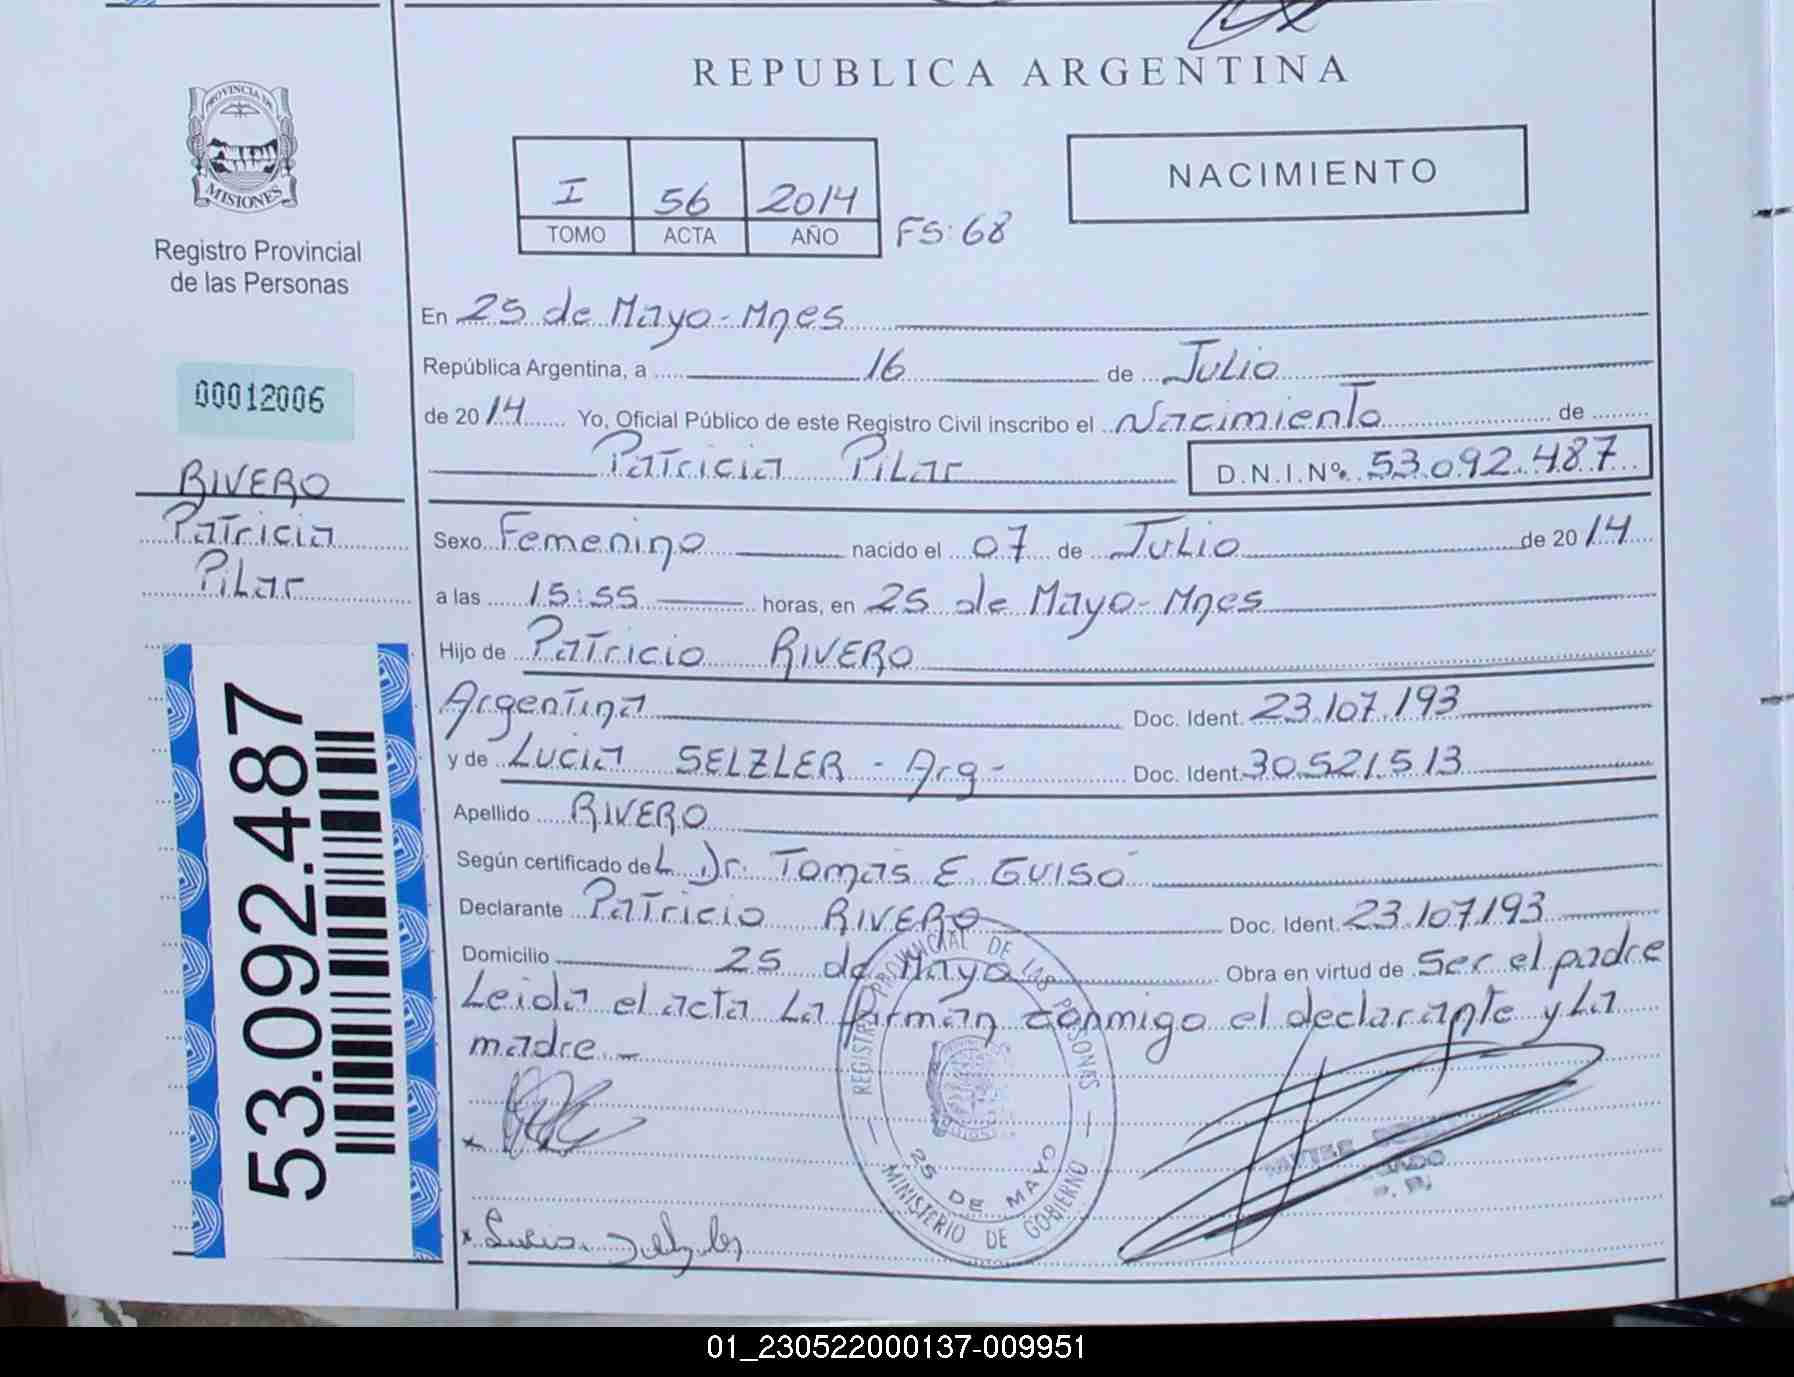 REPUBLICA ARGENTINA
PROVINCIA DE
MISIONES
Registro Provincial
de las Personas
00012006
RIVERO
Patricia
Pilar
53.092.487
I 56 2014
TOMO ACTA AÑO
FS: 68
NACIMIENTO
En 25 de Mayo - Mnes
República Argentina, a 16 de Julio
de 2014 Yo, Oficial Público de este Registro Civil inscribo el Nacimiento de
Patricia Pilar D.N.I.Nº 53.092.487
Sexo Femenino nacido el 07 de Julio de 2014
a las 15:55 horas, en 25 de Mayo - Mnes
Hijo de Patricio RIVERO
Argentina Doc. Ident. 23.107.193
y de Lucia SELZLER - Arg - Doc. Ident. 30.521.513
Apellido RIVERO
Según certificado del Dr. Tomás E. Guisó
Declarante Patricio RIVERO Doc. Ident. 23.107.193
Domicilio 25 de Mayo Obra en virtud de Ser el padre
Leida el acta La firman conmigo el declarante y La
madre. -
REGISTRO PROVINCIAL DE LAS PERSONAS
25 DE MAYO
MINISTERIO DE GOBIERNO
01_230522000137-009951